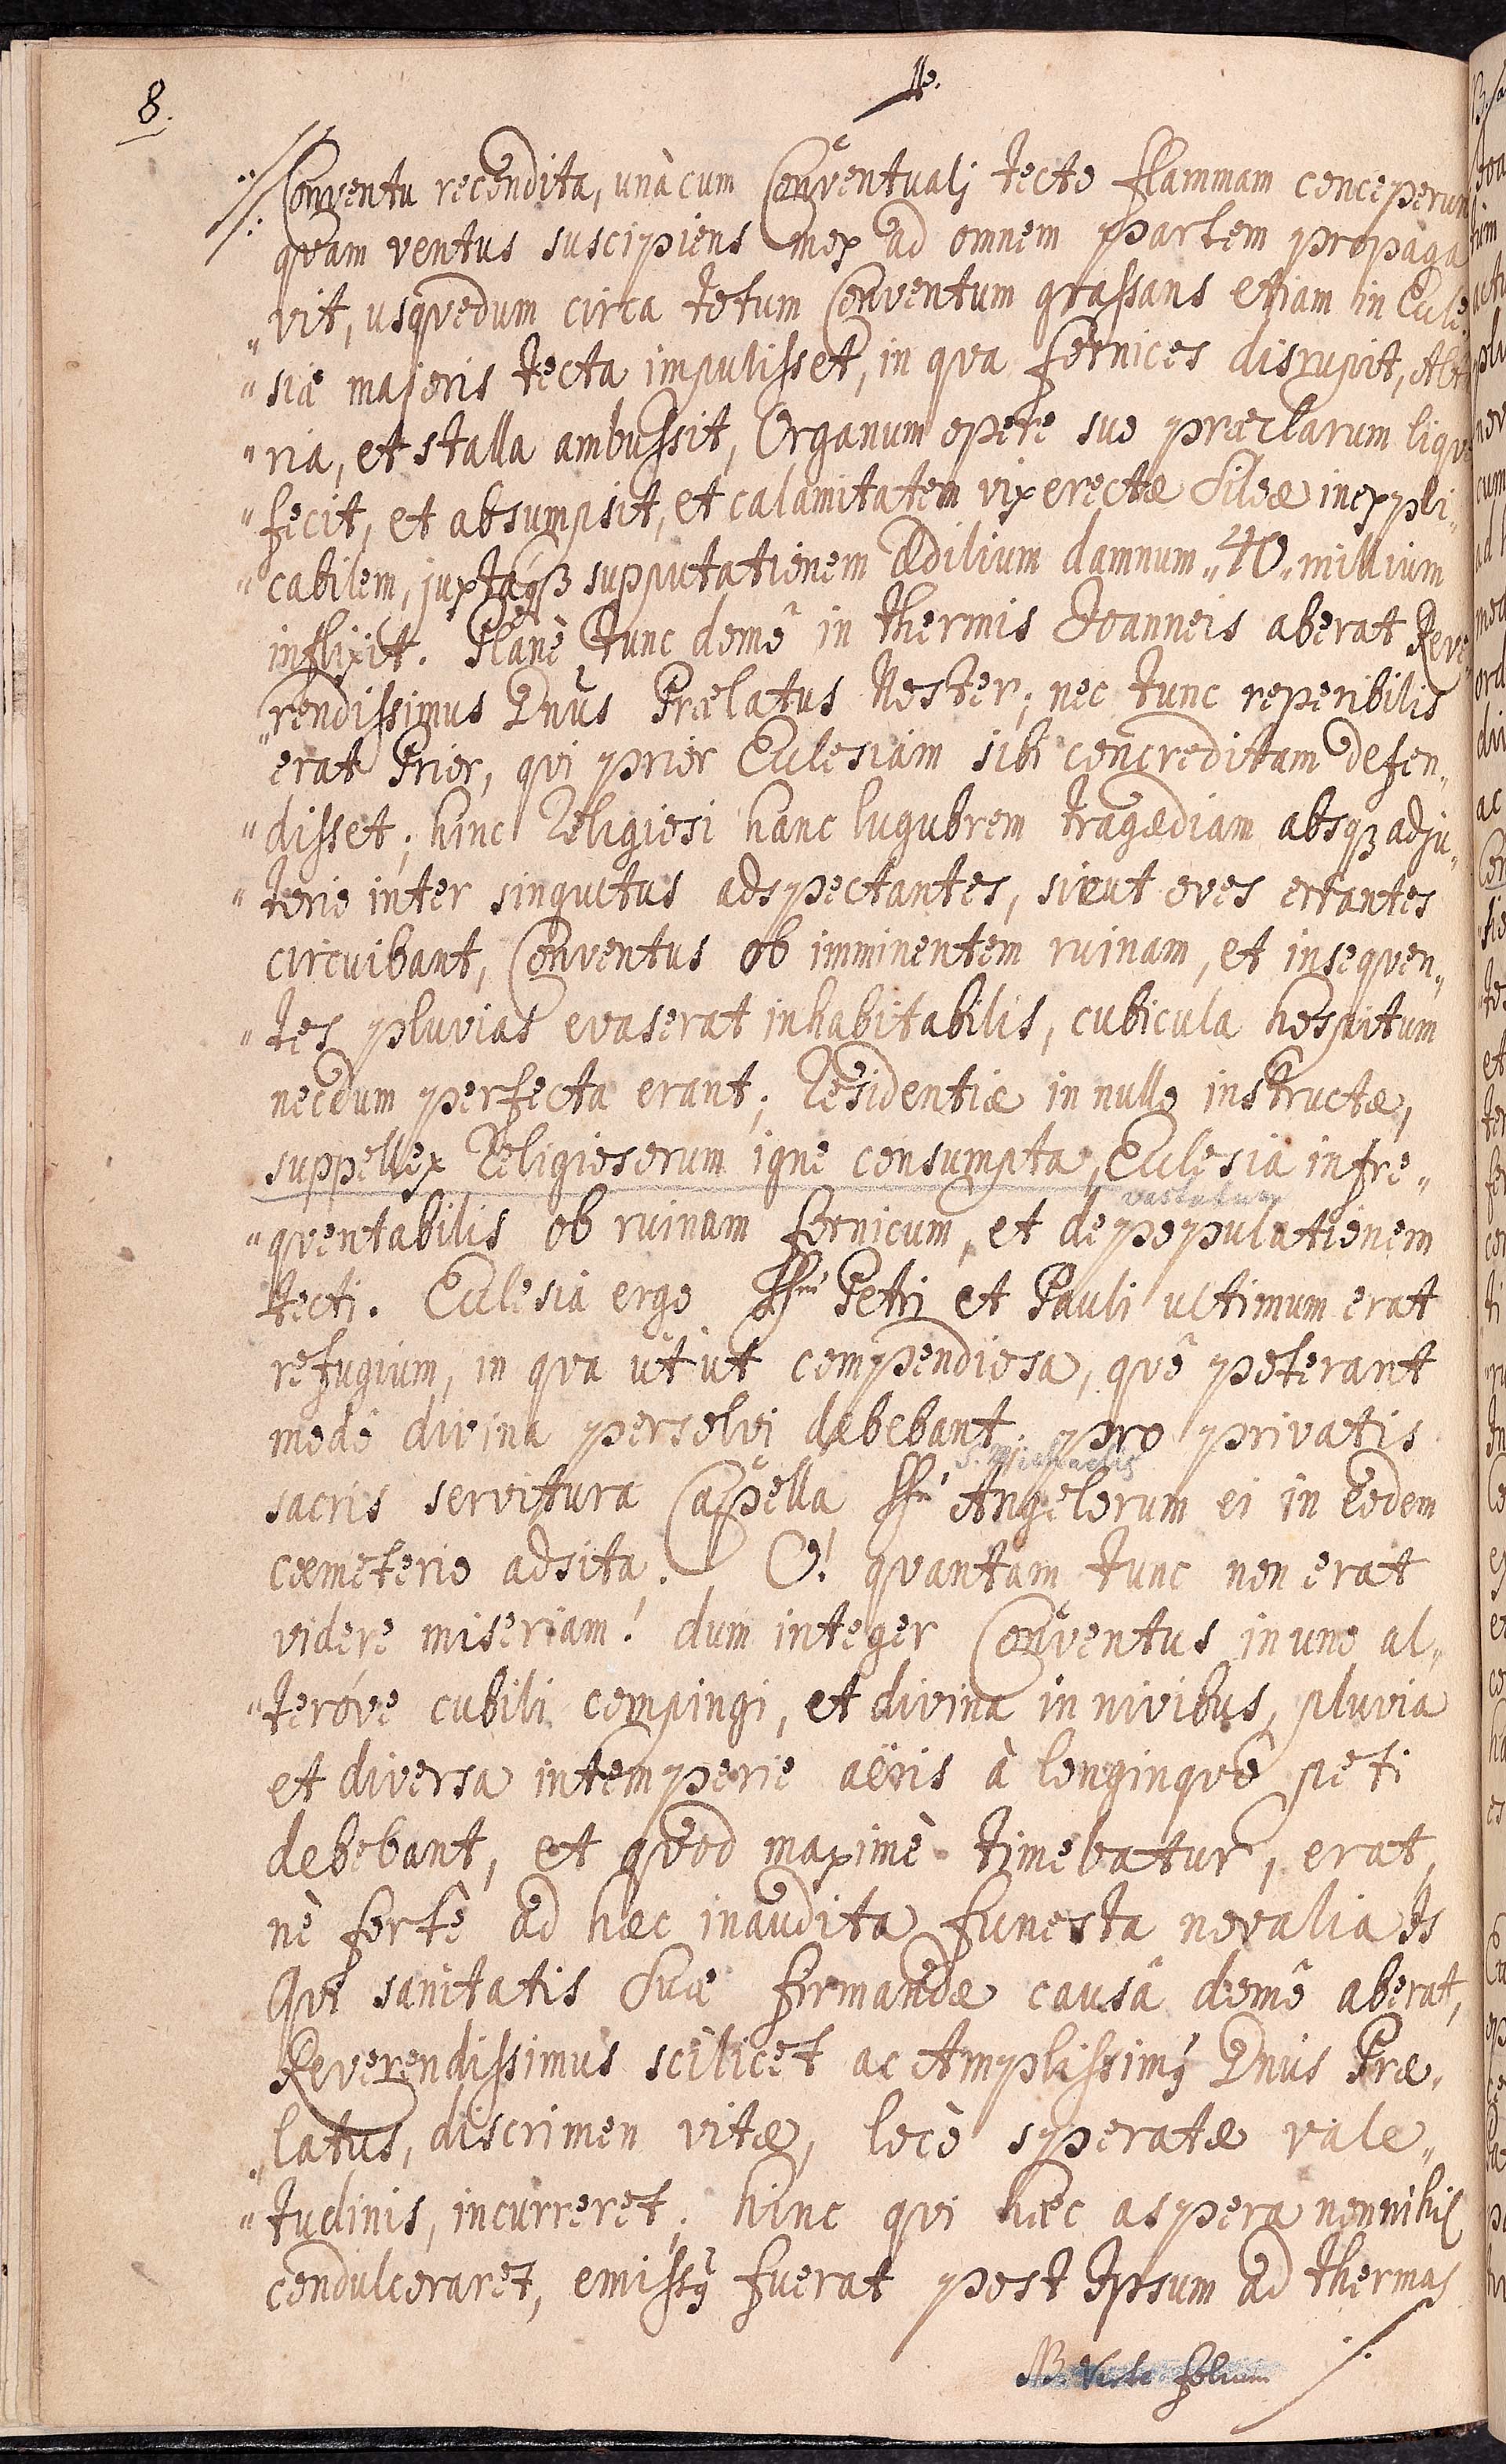 8.
Conventu recondita, unà cum Conventualj tecto flammam conceperunt
quam ventus suscipiens mox ad omnem partem propaga
„vit, usqvedum circa totum Conventum grassans etiam in Eccle„
„siæ majoris tecta impulisset, in qva fornices disrupit, Alta
„ria, et stalla ambussit, Organum opere suo præclarum liqve
„fecit, et absumpsit, et calamitatem vix erectæ Silöæ inexpli„
„cabilem, juxtàqȝ supputationem Ædilium damnum „40„ millium
inflixit. Planè tunc domô in thermis Joanneis aberat Reve„
„rendissimus Dnus Prælatus Noster; nec tunc reperibilis
erat Prior, qvi prior Ecclesiam sibi concreditam defen„
„disset; hinc Religiosi hanc lugubrem tragædiam absqȝ adju„
„torio inter singultus adspectantes, sicut oves errantes
circuibant, Conventus ob imminentem ruinam, et inseqven„
„tes pluvias evaserat inhabitabilis, cubicula hospitum
necdum perfecta erant; Residentiæ in nullo instructæ,
suppellex Religiosorum igne consumpta, Ecclesia infre„
„qventabilis ob ruinam fornicum, et depopulationem
tecti. Ecclesia ergo SS. Petri et Pauli ultimum erat
refugium, in qva ut ut compendiosa, qvô poterant
modô divina persolvi debebant; pro privatis
S. Michaelis
sacris servitura Capella SS. Angelorum ei in eodem
cœmeterio adsita. O! qvantam tunc non erat
videre miseriam! dum integer Conventus in uno al„
„teróve cubili compingi, et divina in nivibus, pluvia
et diversa intemperie aëris à longinqvo peti
debebant, et qvod maximè timebatur, erat,
nè fortè ad hæc inaudita funesta novalia Is
Qvi sanitatis Suæ firmandæ causâ domô aberat,
Reverendissimus scilicet ac Amplissimꝰ Dnus Præ„
„latus, discrimen vitæ, locò speratæ vale„
„tudinis, incurreret; hinc qvi hæc aspera nonnihil
condulcoraret, emissꝰ fuerat post Ipsum ad thermas
NB. Verte folium